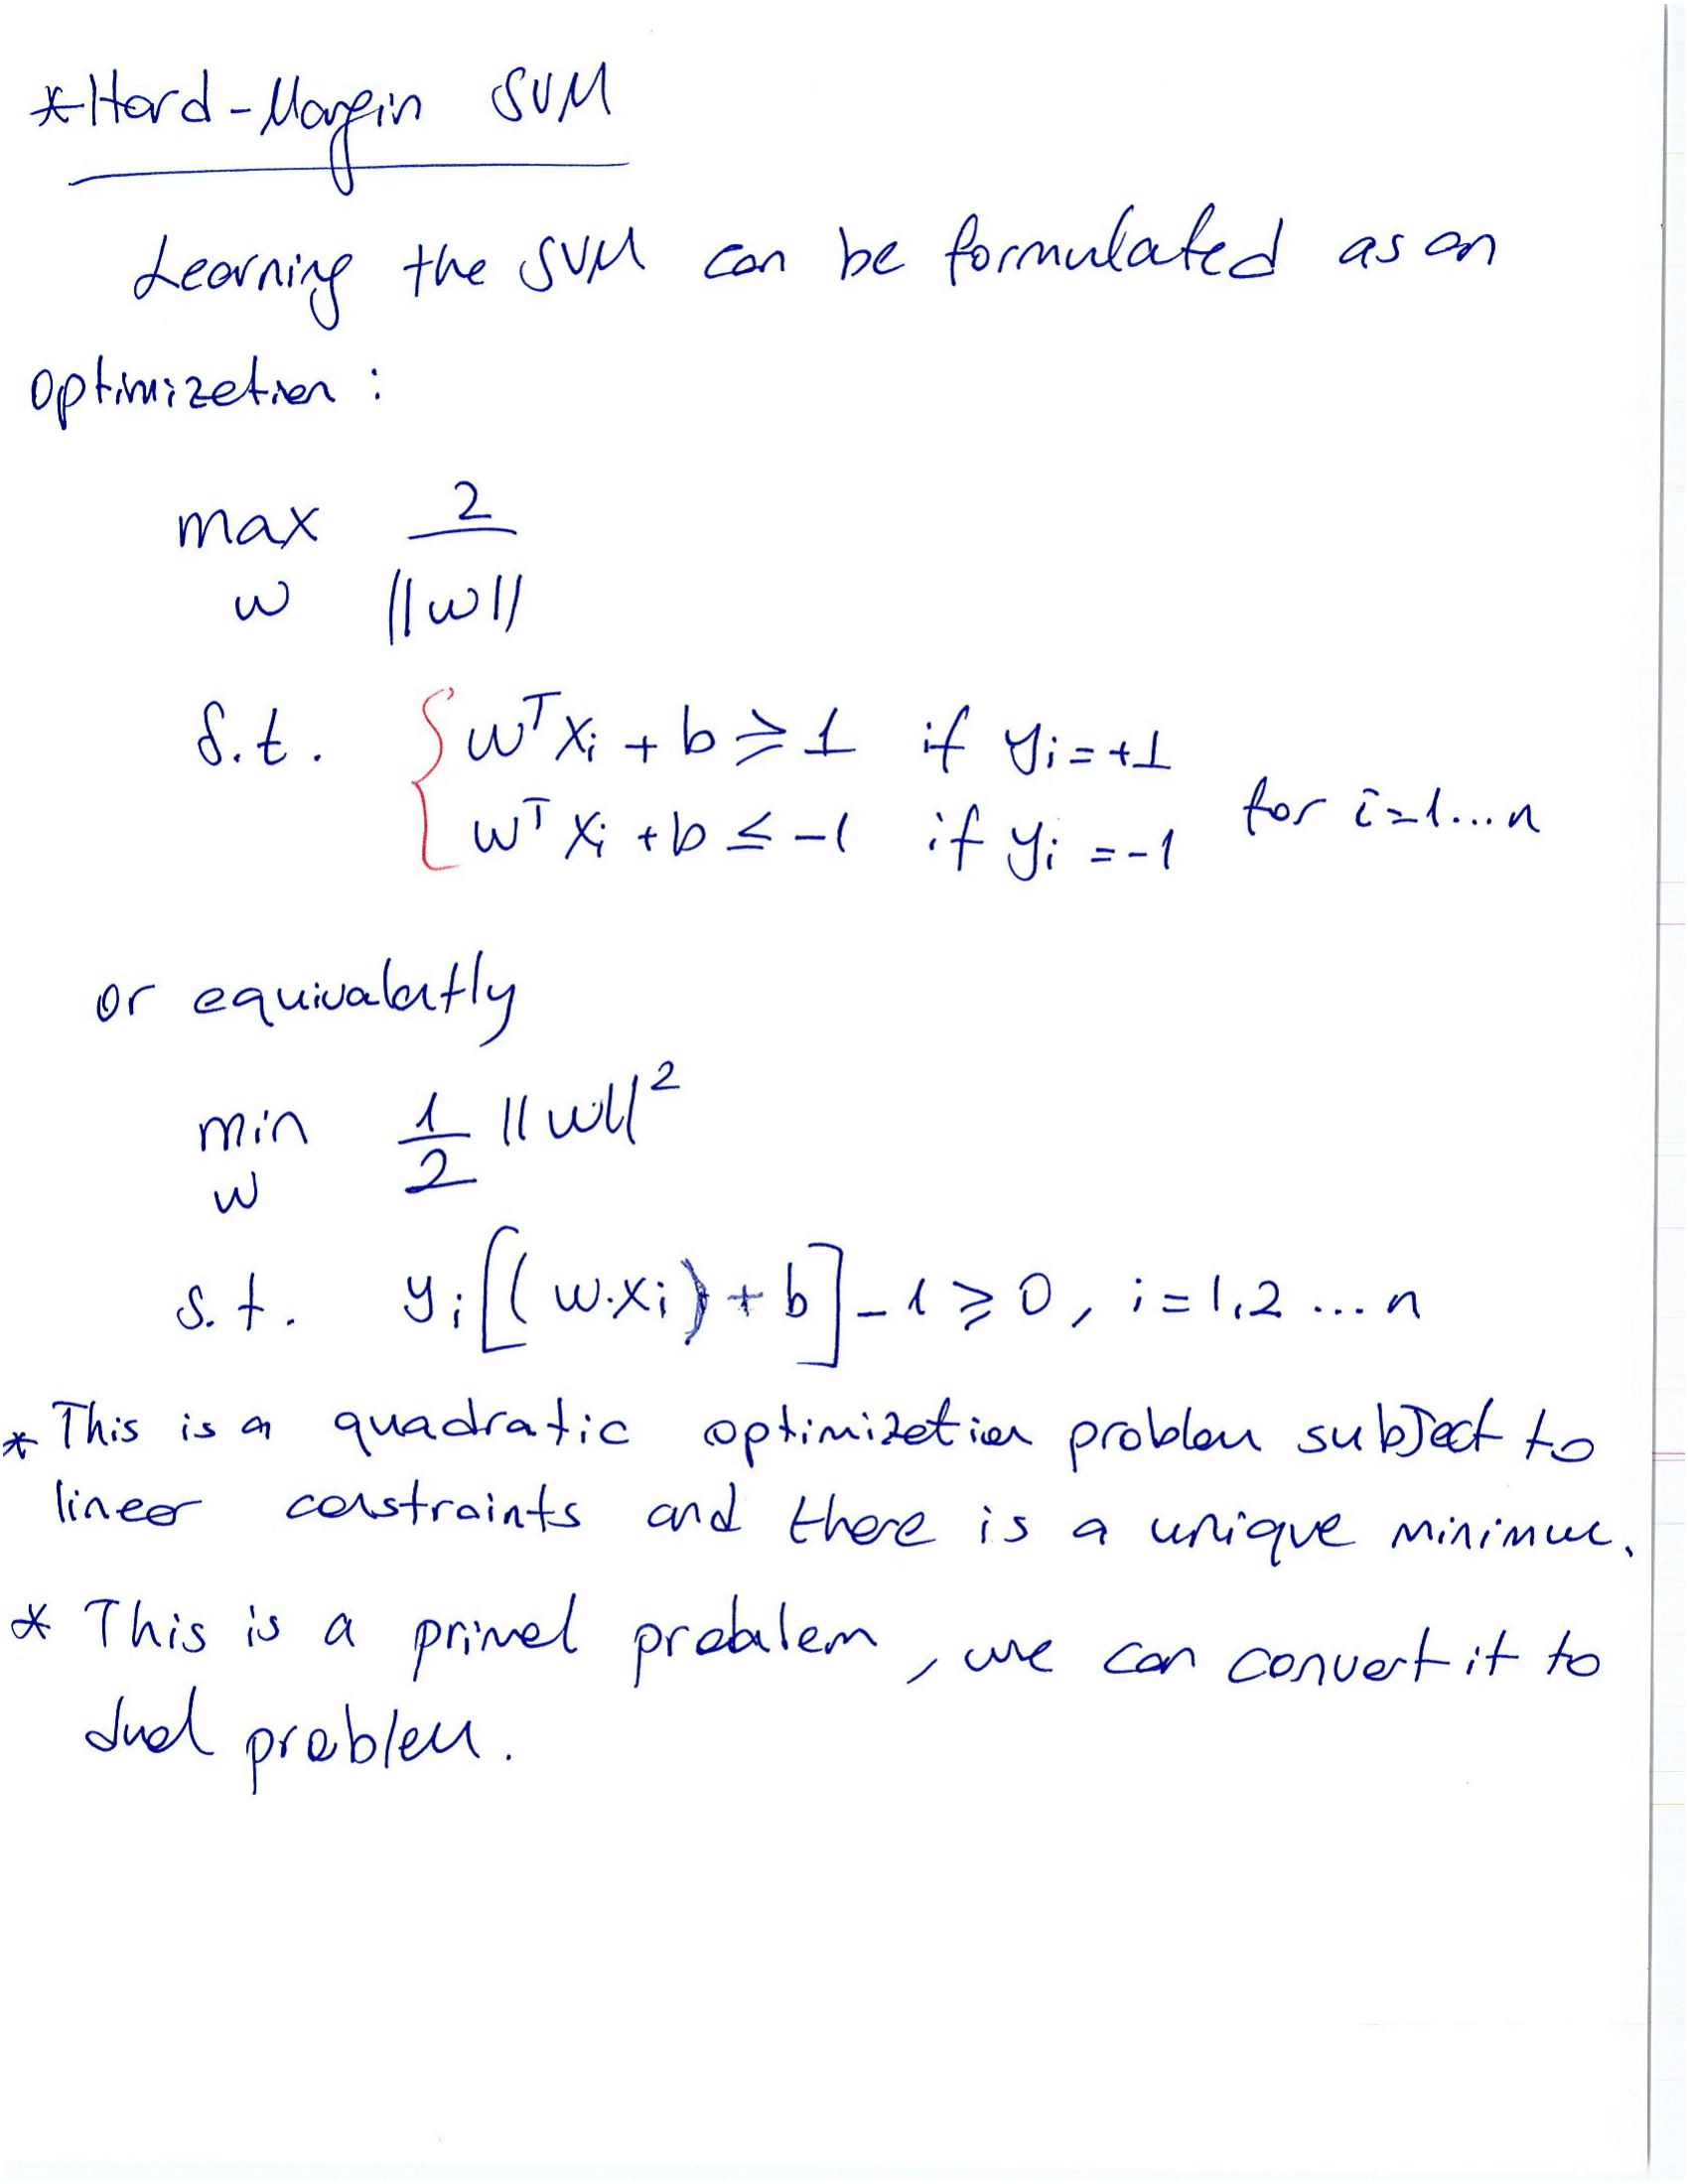 * Hard-Margin SVM
Learning the SVM can be formulated as an
optimization :
max 2
w ||w||
s.t. { wᵀxᵢ + b ≥ 1 if yᵢ = +1
wᵀxᵢ + b ≤ -1 if yᵢ = -1 for i=1...n
or equivalently
min 1/2 ||w||²
w
s.t. yᵢ[(w.xᵢ) + b] - 1 ≥ 0, i=1,2 ... n
* This is a quadratic optimization problem subject to
linear constraints and there is a unique minimum.
* This is a primal problem, we can convert it to
dual problem.